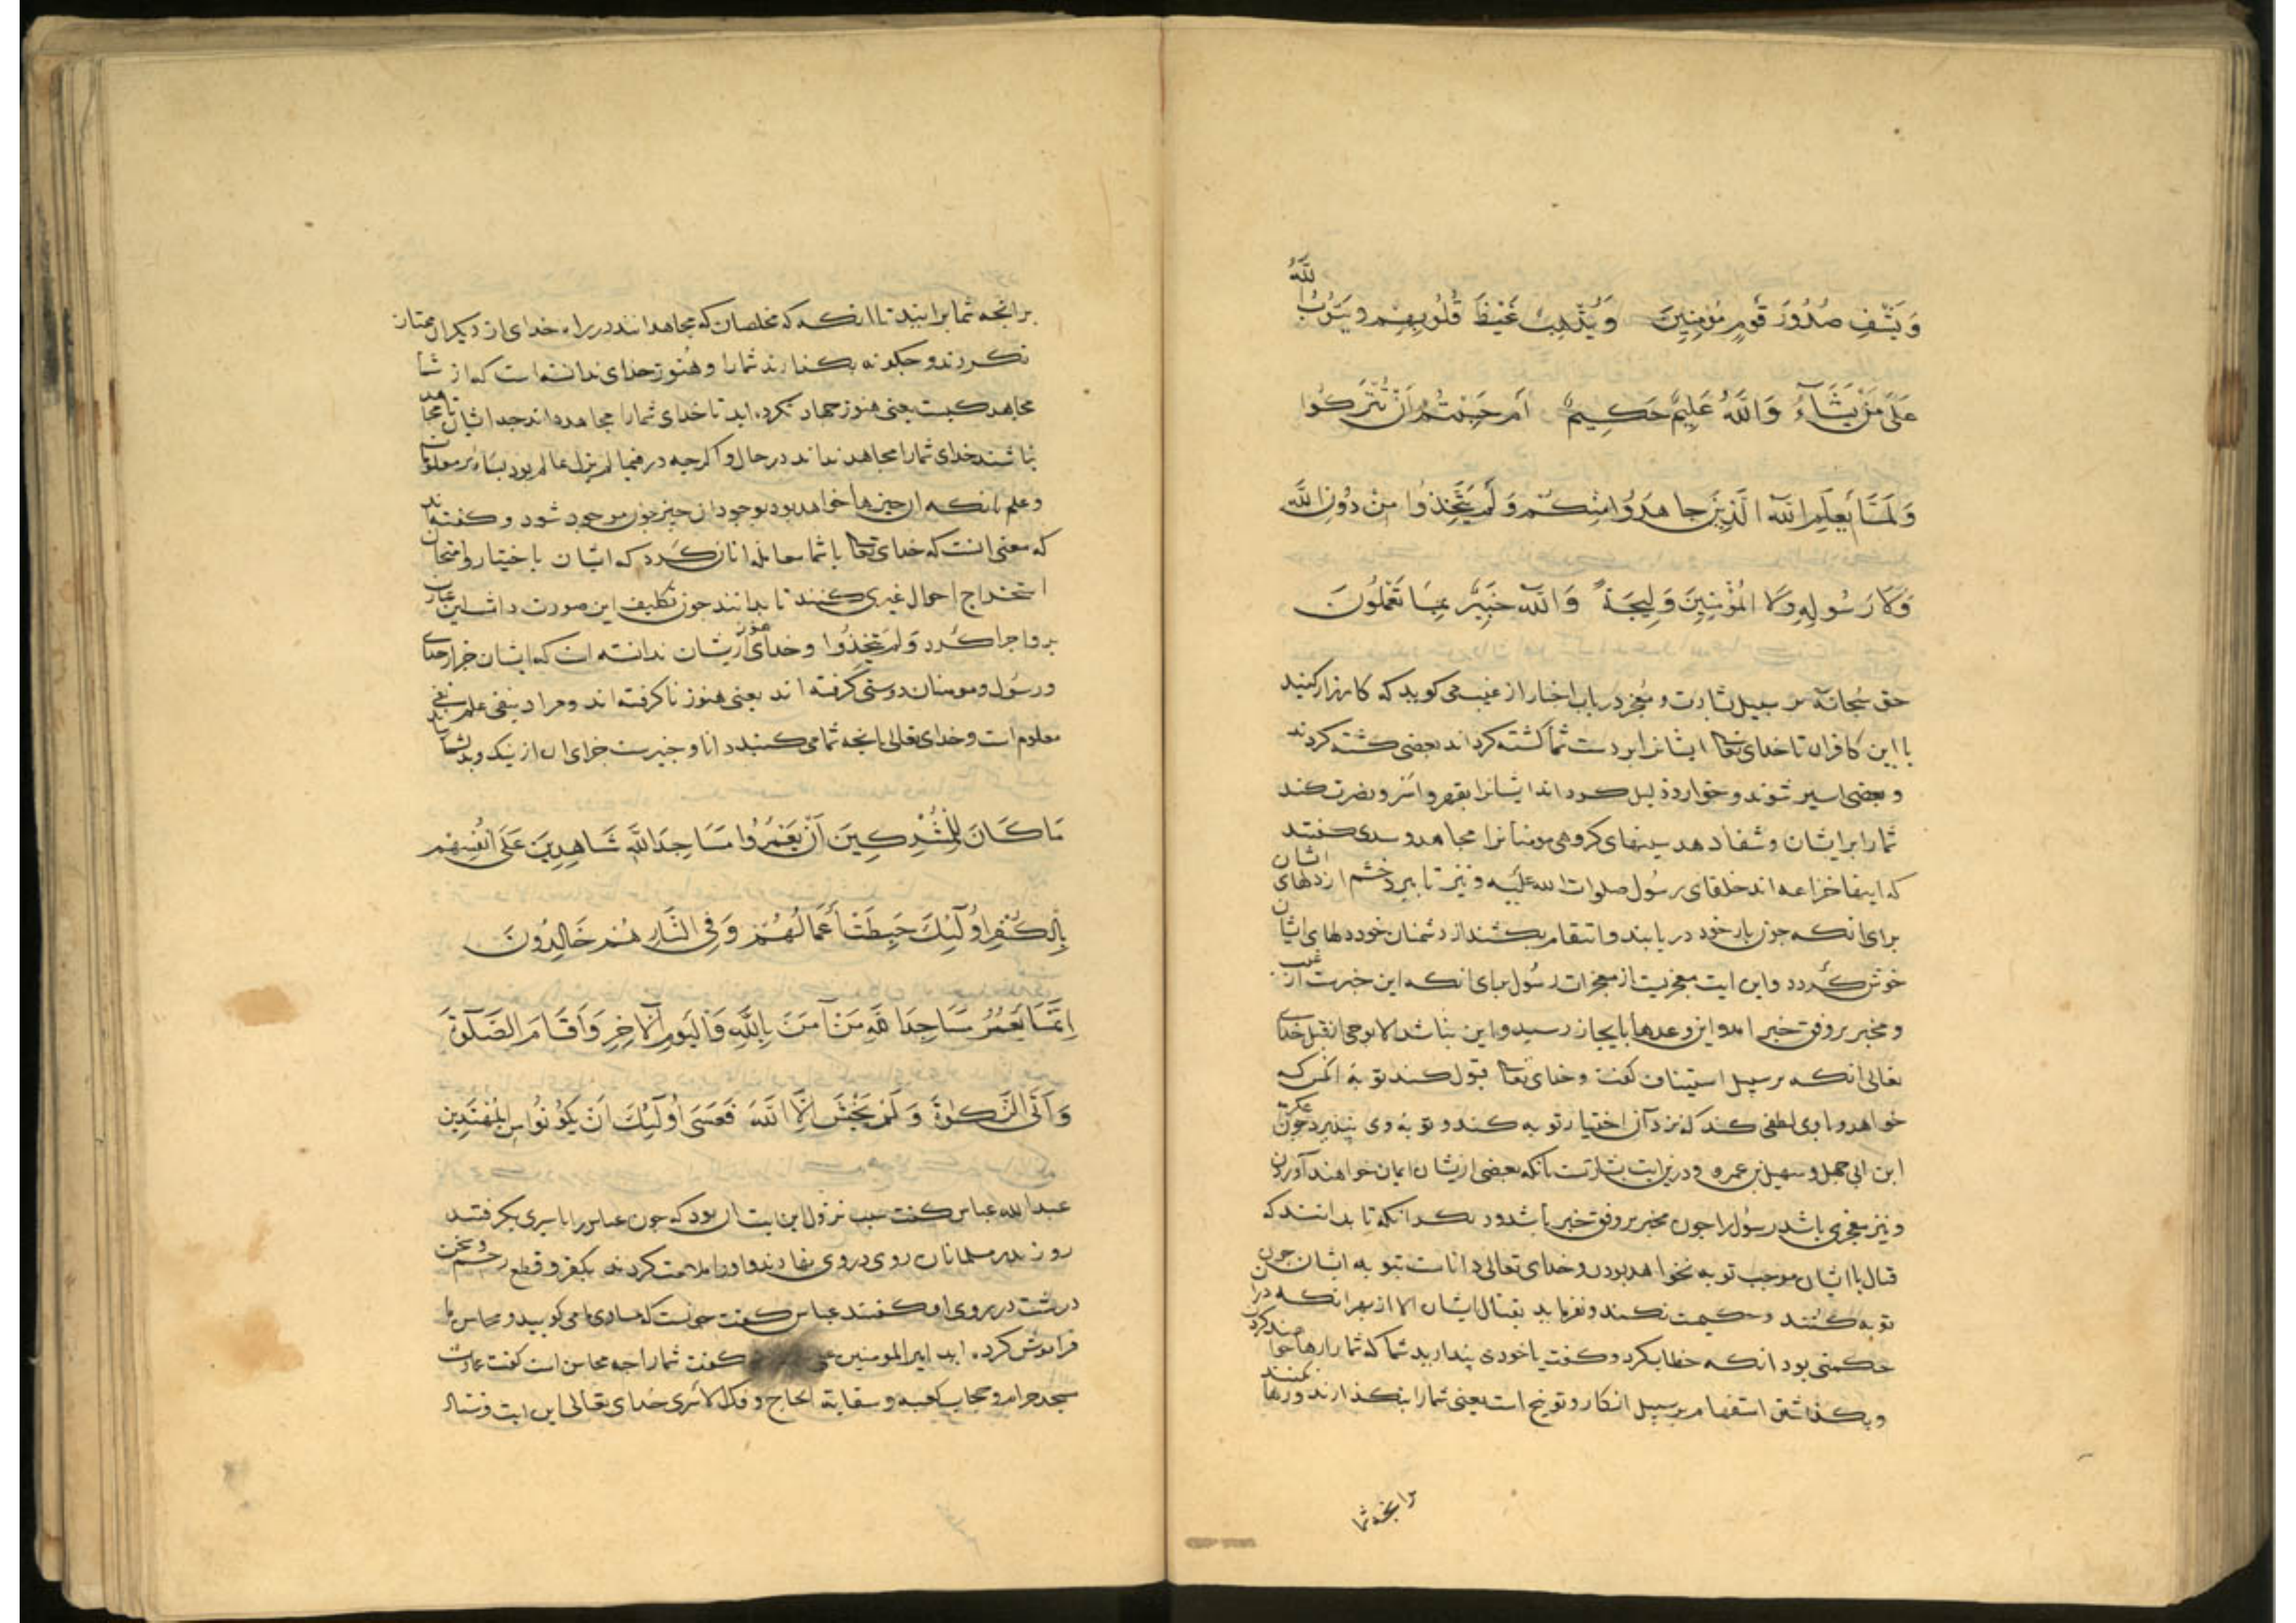 وَيَشْفِ صُدُورَ قَوْمٍ مُؤْمِنِينَ وَيُذْهِبْ غَيْظَ قُلُوبِهِمْ وَيَتُوبُ اللَّهُ
عَلَى مَنْ يَشَآءُ وَاللَّهُ عَلِيمٌ حَكِيمٌ أَمْ حَسِبْتُمْ أَنْ تُتْرَكُوا
وَلَمَّا يَعْلَمِ اللَّهُ الَّذِينَ جَاهَدُوا مِنْكُمْ وَلَمْ يَتَّخِذُوا مِنْ دُونِ اللَّهِ
وَلَا رَسُولِهِ وَلَا الْمُؤْمِنِينَ وَلِيجَةً وَاللَّهُ خَبِيرٌ بِمَا تَعْمَلُونَ
حق سبحانه بر سبیل بشارت و معجز در باب اخبار از غیب می کوید که کارزار کنید
با این کافران تا خدای تعا ایشانرا بر دست شما کشته کرداند بعضی کشته کردند
و بعضی اسیر شوند و خوار و ذلیل کرداند ایشانرا بقهر و اسر و نصرت کند
شما را بر ایشان و شفا دهد سینهای کروهی مومنانرا مجاهد و سدی کفتند
که اینها خزاعه اند حلفای رسول صلوات الله علیه و نیز تا ببرد خشم از دلهای ایشان
برای انکه چون بار خود در یابند و انتقام بکشند از دشمنان خود دلهای ایشان
خوش کردد و این ایت معجزیست از معجزات رسول برای انکه این خبرست از غیب
و مخبر بر وفق خبر امد و این وعدها بایجاز رسید و این نباشد الا بوحی از قبل خدای
تعالی انکه بر سبیل استیناف کفت و خدای تعا قبول کند توبه انکس که
خواهد و با وی لطفی کند که نزد آن اختیار توبه کند و توبه وی بپذیرد چون عکرمة
ابن ابی جهل و سهیل بن عمرو و درین ایت بشارتست بانکه بعضی ازیشان ایمان خواهند آوردن
و نیز معجزی باشد رسول را چون مخبر بر وفق خبر باشد و دیکر انکه تا بدانند که
قتال با ایشان موجب توبه نخواهد بودن و خدای تعالی داناست بتوبه ایشان چون
توبه کنند و حکیمست نکند و نفرماید بقتال ایشان الا از بهر انکه در ان
حکمتی بود انکه خطاب کرد و کفت یا خود می پندارید شما که شما را رها خواهند کردن
و بکذاشتن استفهام بر سبیل انکار و توبیخ است یعنی شما را بنکذارند و رها نکنند
برانجه شما
برانجه شما برانید تا انکه که مخلصان که مجاهدانند در راه خدای از دیکران ممتاز
نکردند و چکونه بکذارند شما را و هنوز خدای ندانسته است که از شما
مجاهد کیست یعنی هنوز جهاد نکرده اید تا خدای شما را مجاهد داند چه ایشان تا مجاهد
نباشند خدای شما را مجاهد نداند در حال و اکرچه در فیما لم یزل عالم بود بسایر معلومات
و علم بانکه ان چیزها خواهد بود بوجود ان چیز چون موجود شود و کفته اند
که معنی انست که خدای تعا با شما معامله انان کند که ایشان باختیار و امتحان
استخراج احوال غیری کنند تا بدانند چون تکلیف این صورت داشت این عبارت
برو اجرا کرد وَلَمْ يَتَّخِذُوا و خدای هنوز ازیشان ندانسته است که ایشان جز از خدای
و رسول و مومنان دوستی کرفته اند یعنی هنوز نا کرفته اند و مراد بنفی علم نفی
معلوم است و خدای تعالی بانجه شما می کنید دانا و خبیرست جزای ان از نیک و بد بشما رساند
مَا كَانَ لِلْمُشْرِكِينَ أَنْ يَعْمُرُوا مَسَاجِدَ اللَّهِ شَاهِدِينَ عَلَى أَنْفُسِهِمْ
بِالْكُفْرِ أُولَٰئِكَ حَبِطَتْ أَعْمَالُهُمْ وَفِي النَّارِ هُمْ خَالِدُونَ
إِنَّمَا يَعْمُرُ مَسَاجِدَ اللَّهِ مَنْ آمَنَ بِاللَّهِ وَالْيَوْمِ الْآخِرِ وَأَقَامَ الصَّلَوةَ
وَآتَى الزَّكَوةَ وَلَمْ يَخْشَ إِلَّا اللَّهَ فَعَسَى أُولَٰئِكَ أَنْ يَكُونُوا مِنَ الْمُهْتَدِينَ
عبدالله عباس کفت سبب نزول این ایت ان بود که چون عباس را باسیری بکرفتند
روز بدر مسلمانان روی در وی نهادند و او را ملامت کردند بکفر و قطع رحم و سخن
درشت در روی او کفتند عباس کفت چیست که مساوی ما می کویید و محاسن ما
فراموش کرده اید امیر المومنین علی کفت شما را چه محاسن است کفت عمارت
مسجد حرام و حجاب کعبه و سقایة الحاج و فک الاسری خدای تعالی این ایت فرستاد